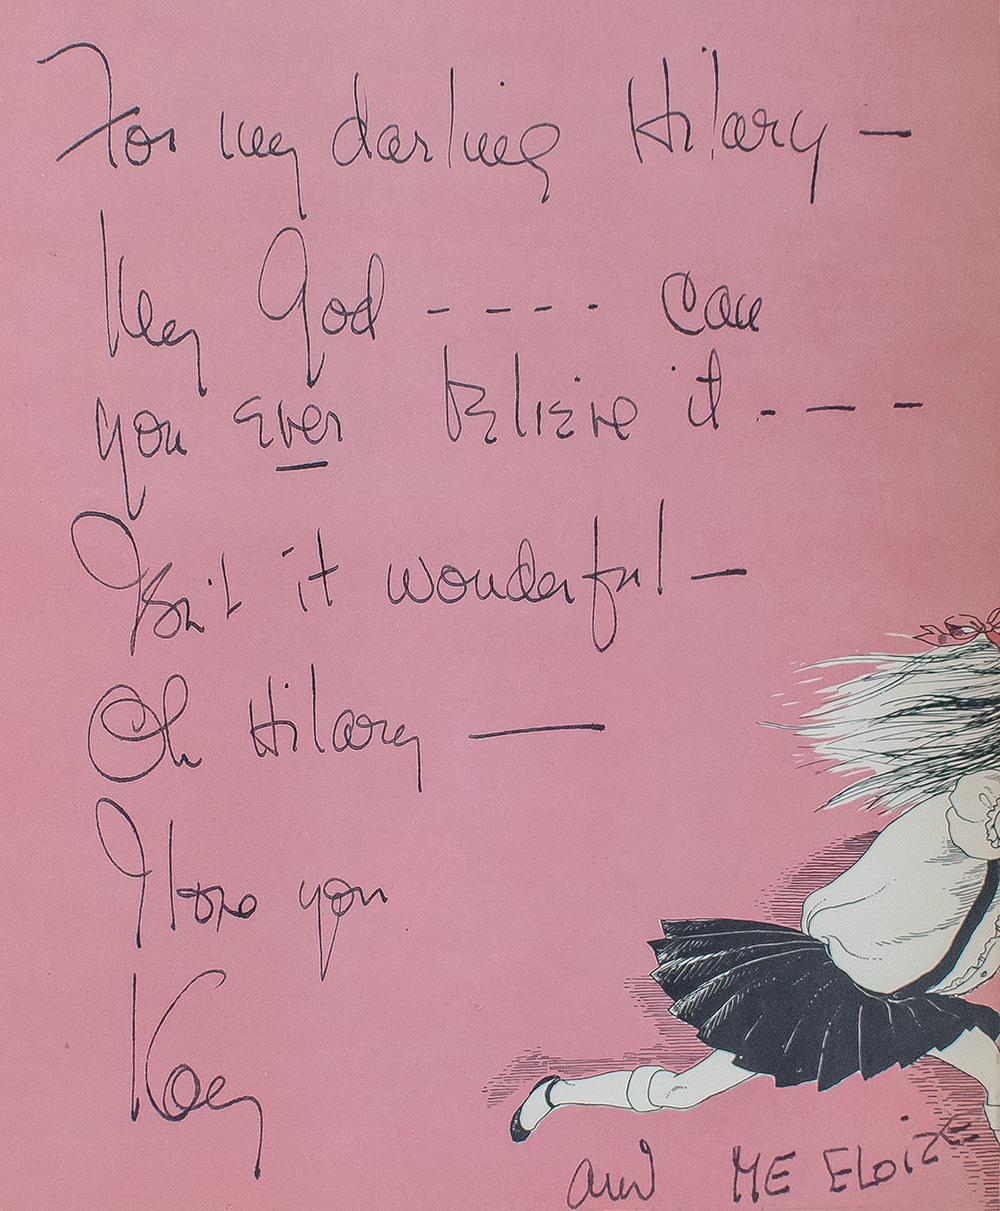 For my darling Hilary —
My God - - - - can
you ever believe it - — -
Isn't it wonderful —
Oh Hilary —
I love you
Kay
and ME Eloize